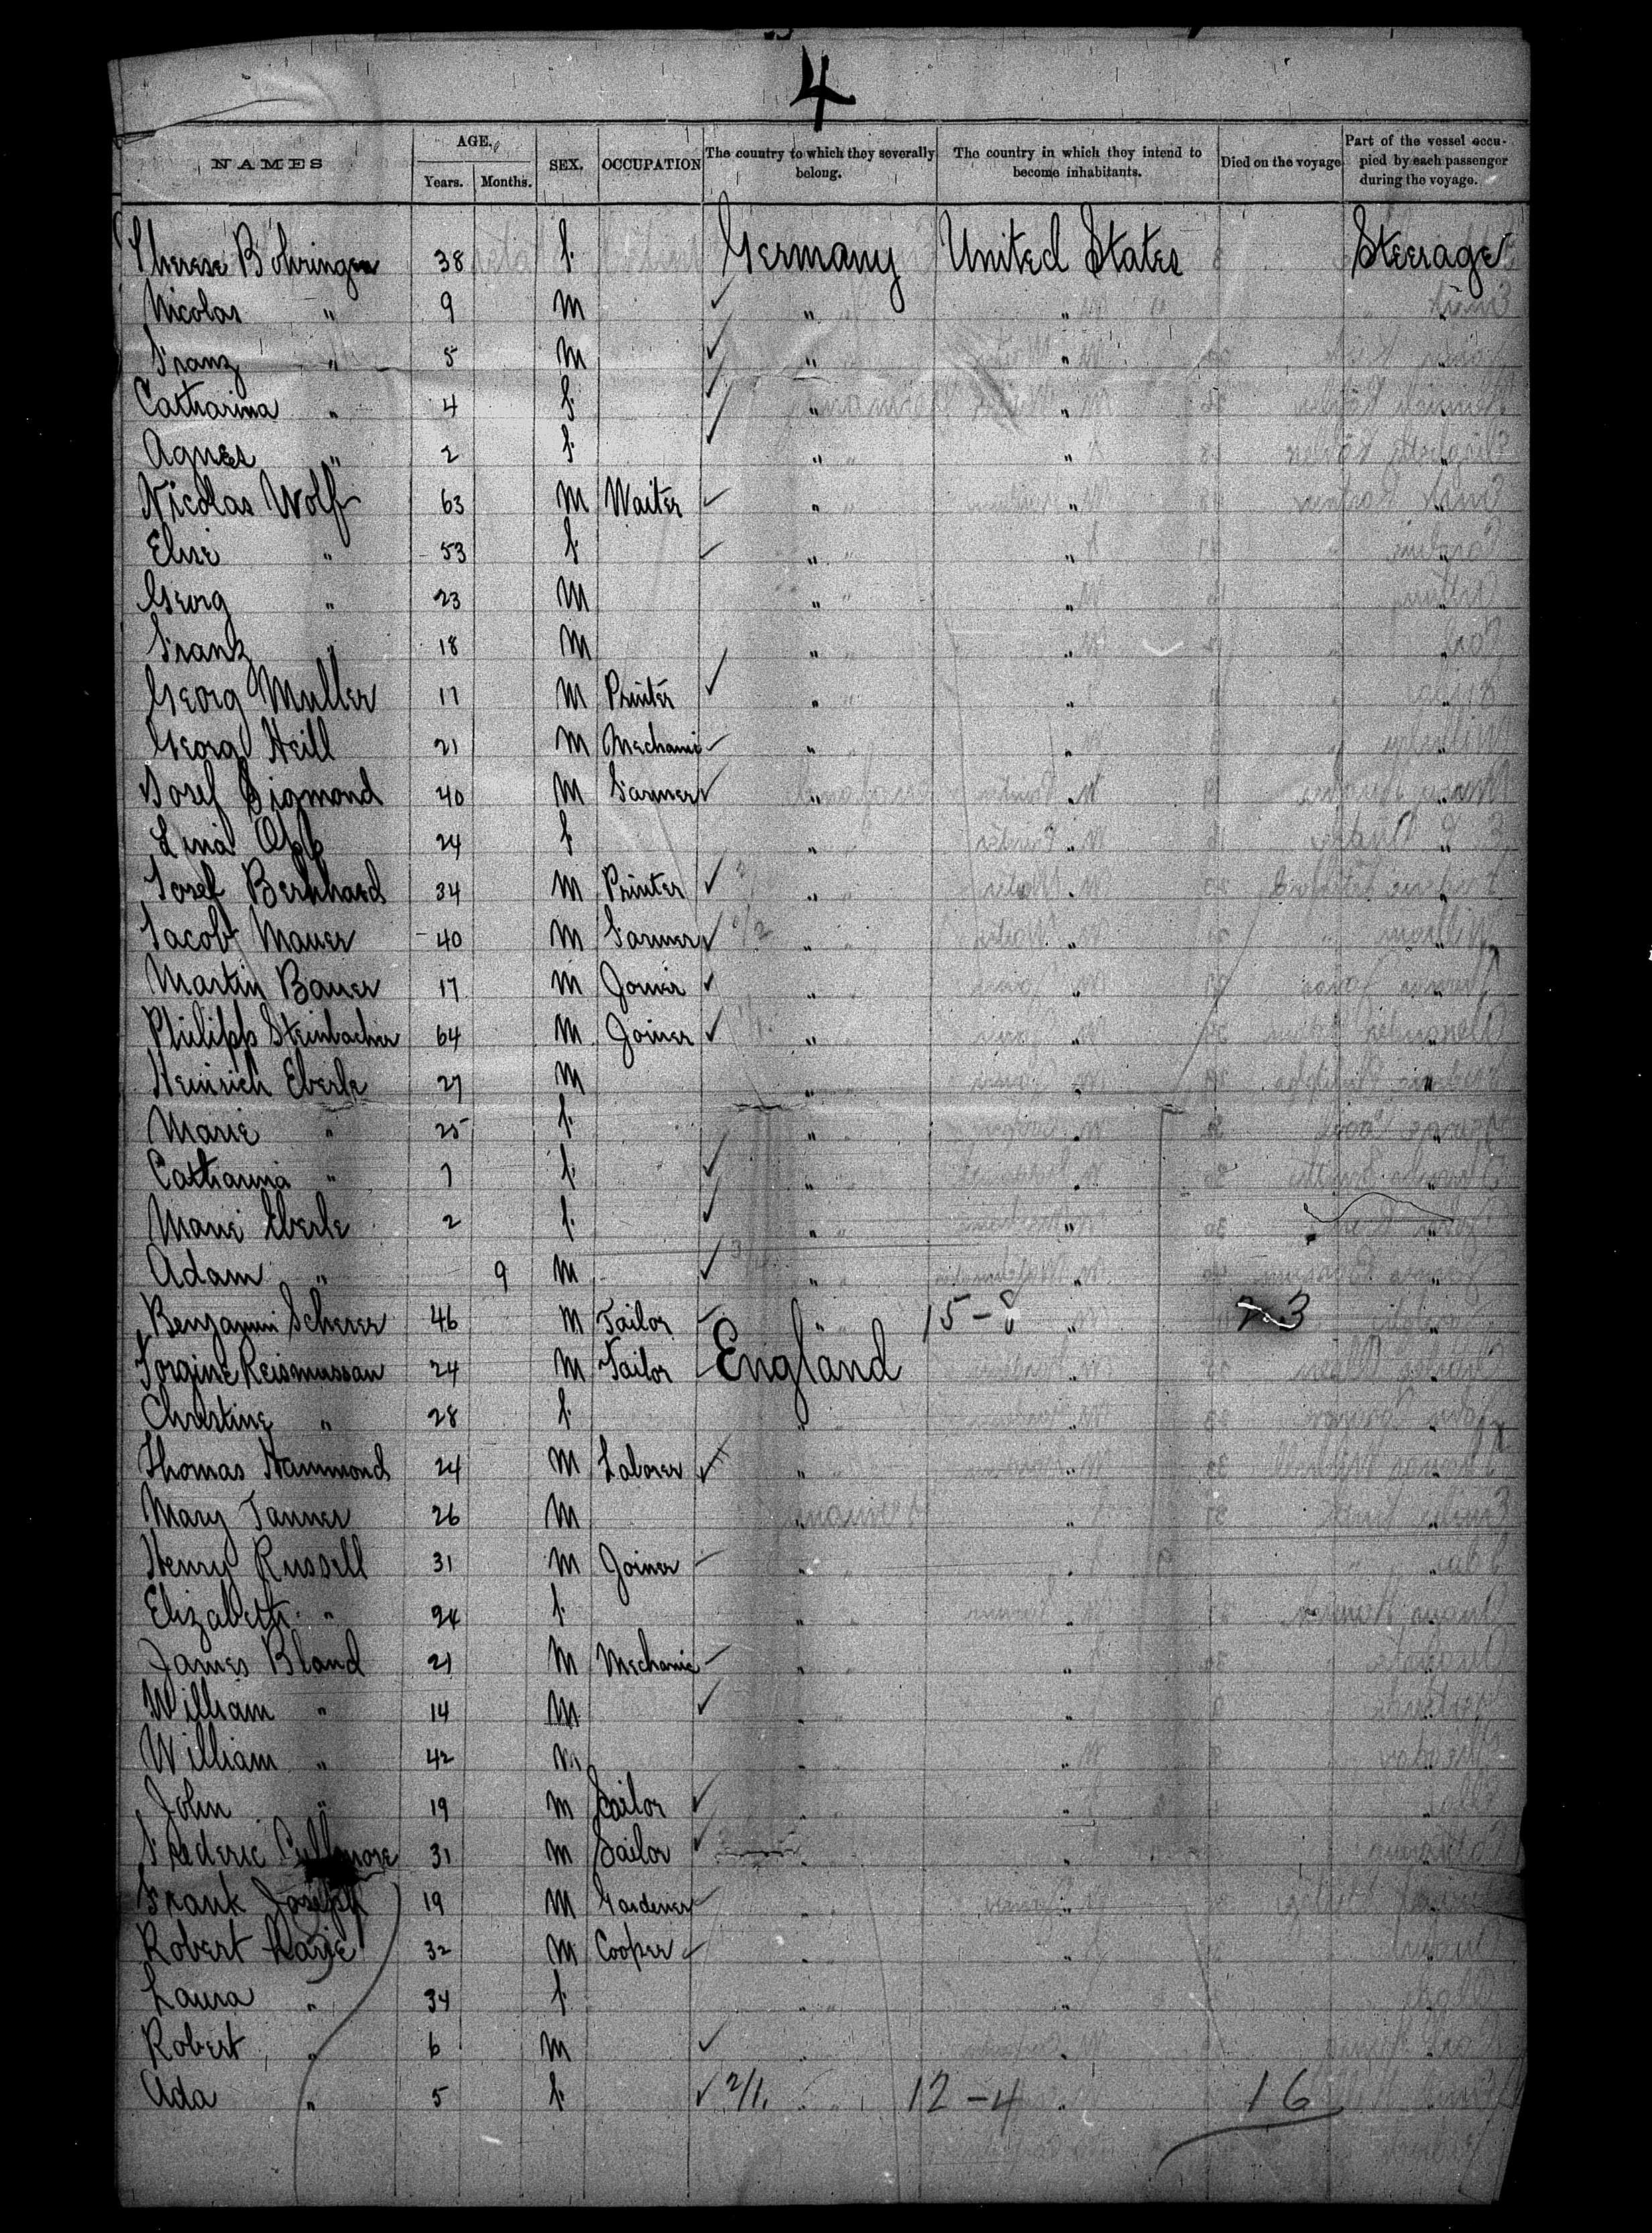 4
NAMES AGE. Years. Months. SEX. OCCUPATION The country to which they severally belong. The country in which they intend to become inhabitants. Died on the voyage Part of the vessel occupied by each passenger during the voyage.
Therese Böhringer 38 f. Germany United States Steerage
Nicolas " 9 M " " "
Franz " 5 M " " "
Catharina " 4 f " " "
Agnes " 2 f " " "
Nicolas Wolf 63 M Waiter " " "
Elise " 53 f. " " "
Georg " 23 M " " "
Franz " 18 M " " "
Georg Muller 17 M Printer " " "
Georg Heill 21 M Mechanic " " "
Josef Sigmond 40 M Farmer " " "
Lina Opp 24 f " " "
Josef Bernhard 34 M Printer " " "
Jacob Mauer 40 M Farmer " " "
Martin Bauer 17 M Joiner " " "
Philipp Steinbacher 64 M Joiner " " "
Heinrich Eberle 27 M " " "
Marie " 25 f. " " "
Catharina " 7 f. " " "
Marie Eberle 2 f. " " "
Adam " 9 M " " "
Benjamin Scherer 46 M Tailor " 15-8 " 23
Reismussan 24 M Tailor England " "
Christine " 28 f. " " "
Thomas Hammond 24 M Laborer " " "
Mary Tanner 26 M " " "
Henry Russell 31 M Joiner " " "
Elizabeth " 24 f. " " "
James Bland 21 M Mechanic " " "
William " 14 M " " "
William " 42 M " " "
John " 19 M Sailor " " "
Frederic 31 M Sailor " " "
Frank Joseph 19 M Gardener " " "
Robert 32 M Cooper " " "
Laura " 34 f. " " "
Robert " 6 M " " "
Ada " 5 f. 2/1. " 12-4 " 16